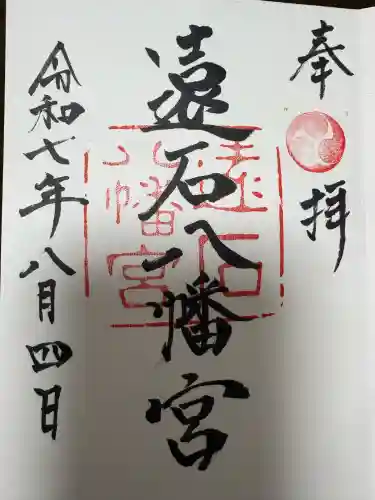 奉拝
遠石八幡宮
遠石
八幡宮
令和七年八月四日